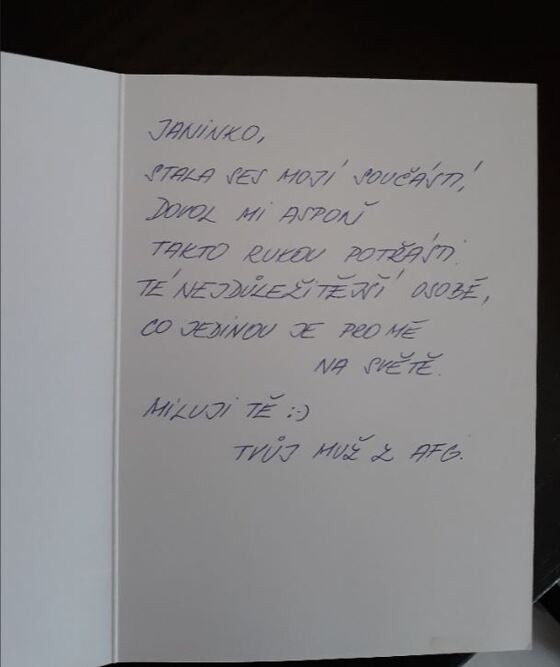 JANINKO,
STALA SES MOJÍ SOUČÁSTÍ,
DOVOL MI ASPOŇ
TAKTO RUKOU POTŘÁSTI
TÉ NEJDŮLEŽITĚJŠÍ OSOBĚ,
CO JEDINOU JE PRO MĚ
NA SVĚTĚ.
MILUJI TĚ :-)
TVŮJ MUŽ Z AFG.